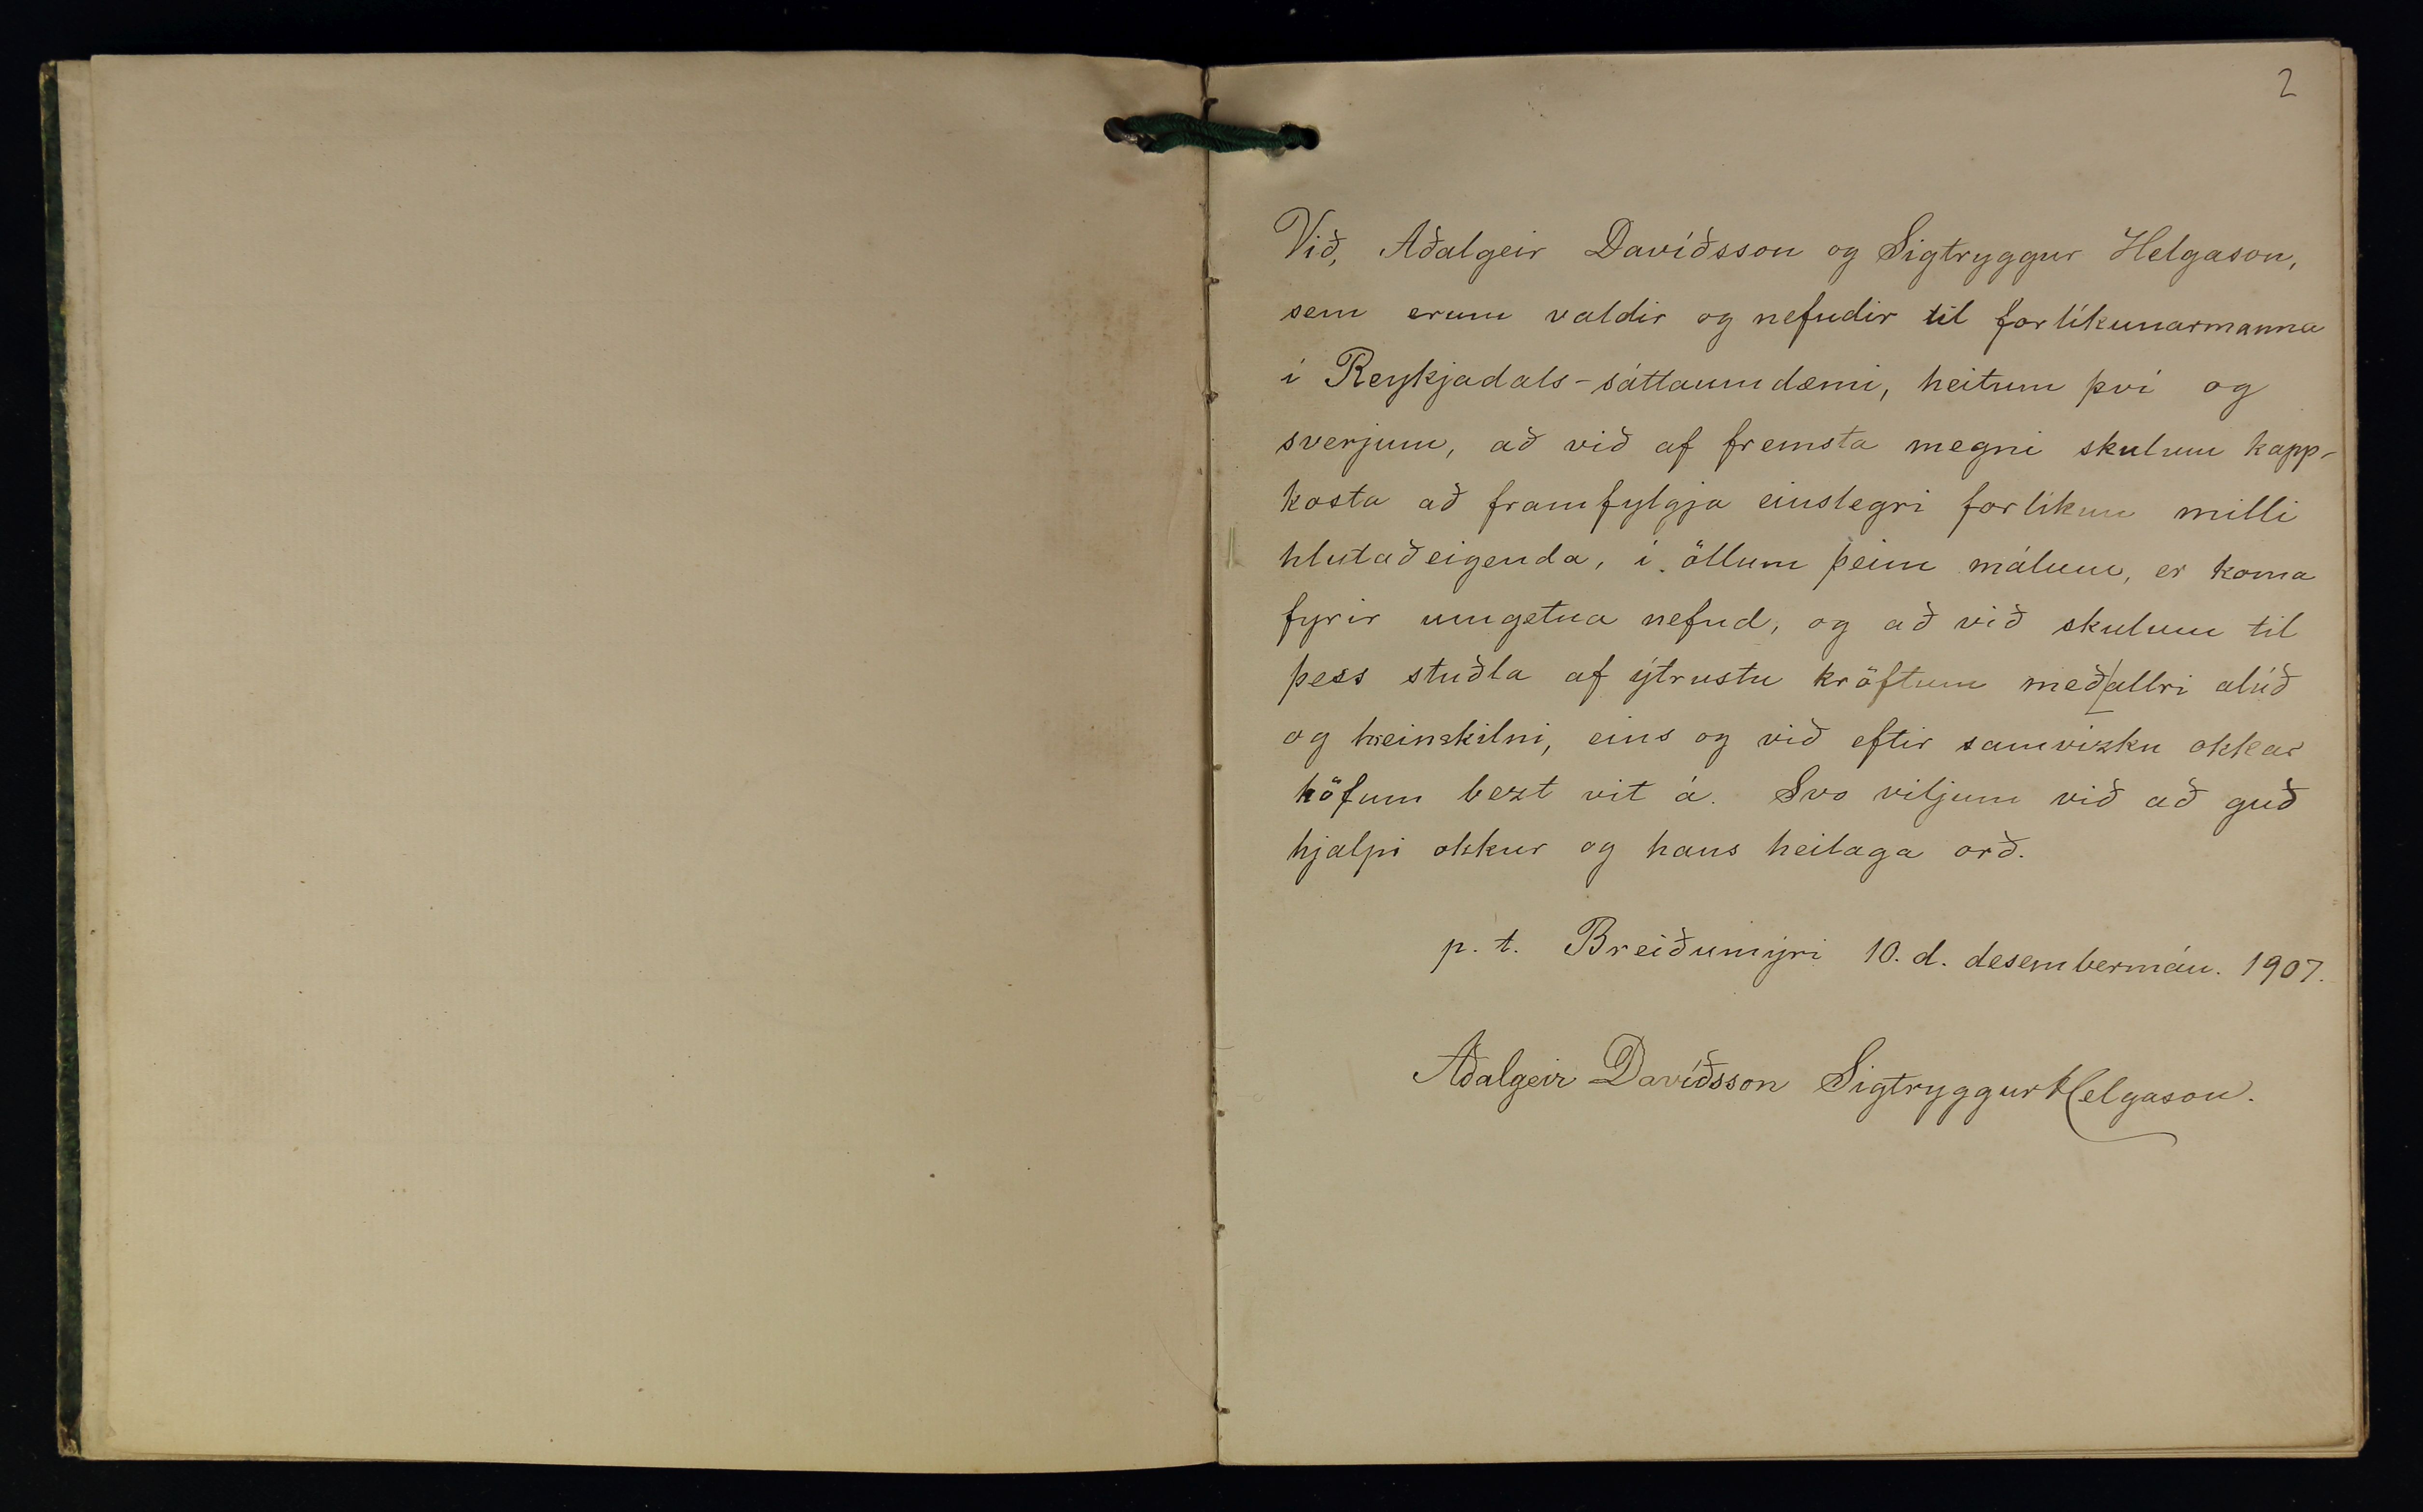 2
Við, Aðalgeir Davíðsson og Sigtryggur Helgason,
sem erum valdir og nefndir til forlíkunarmanna
í Reykjadals-sáttaumdæmi, heitum því og
sverjum, að við af fremsta megni skulum kapp-
kosta að framfylgja einslegri forlíkun milli
hlutaðeigenda, í öllum þeim málum, er koma
fyrir umgetna nefnd, og að við skulum til
þess stuðla af ýtrustu kröftum með allri alúð
og hreinskilni, eins og við eftir samvizku okkar
höfum bezt vit á. Svo viljum við að guð
hjalpi okkur og hans heilaga orð.
p. t. Breiðumýri 10. d. desembermán. 1907.
Aðalgeir Davíðsson Sigtryggur Helgason.